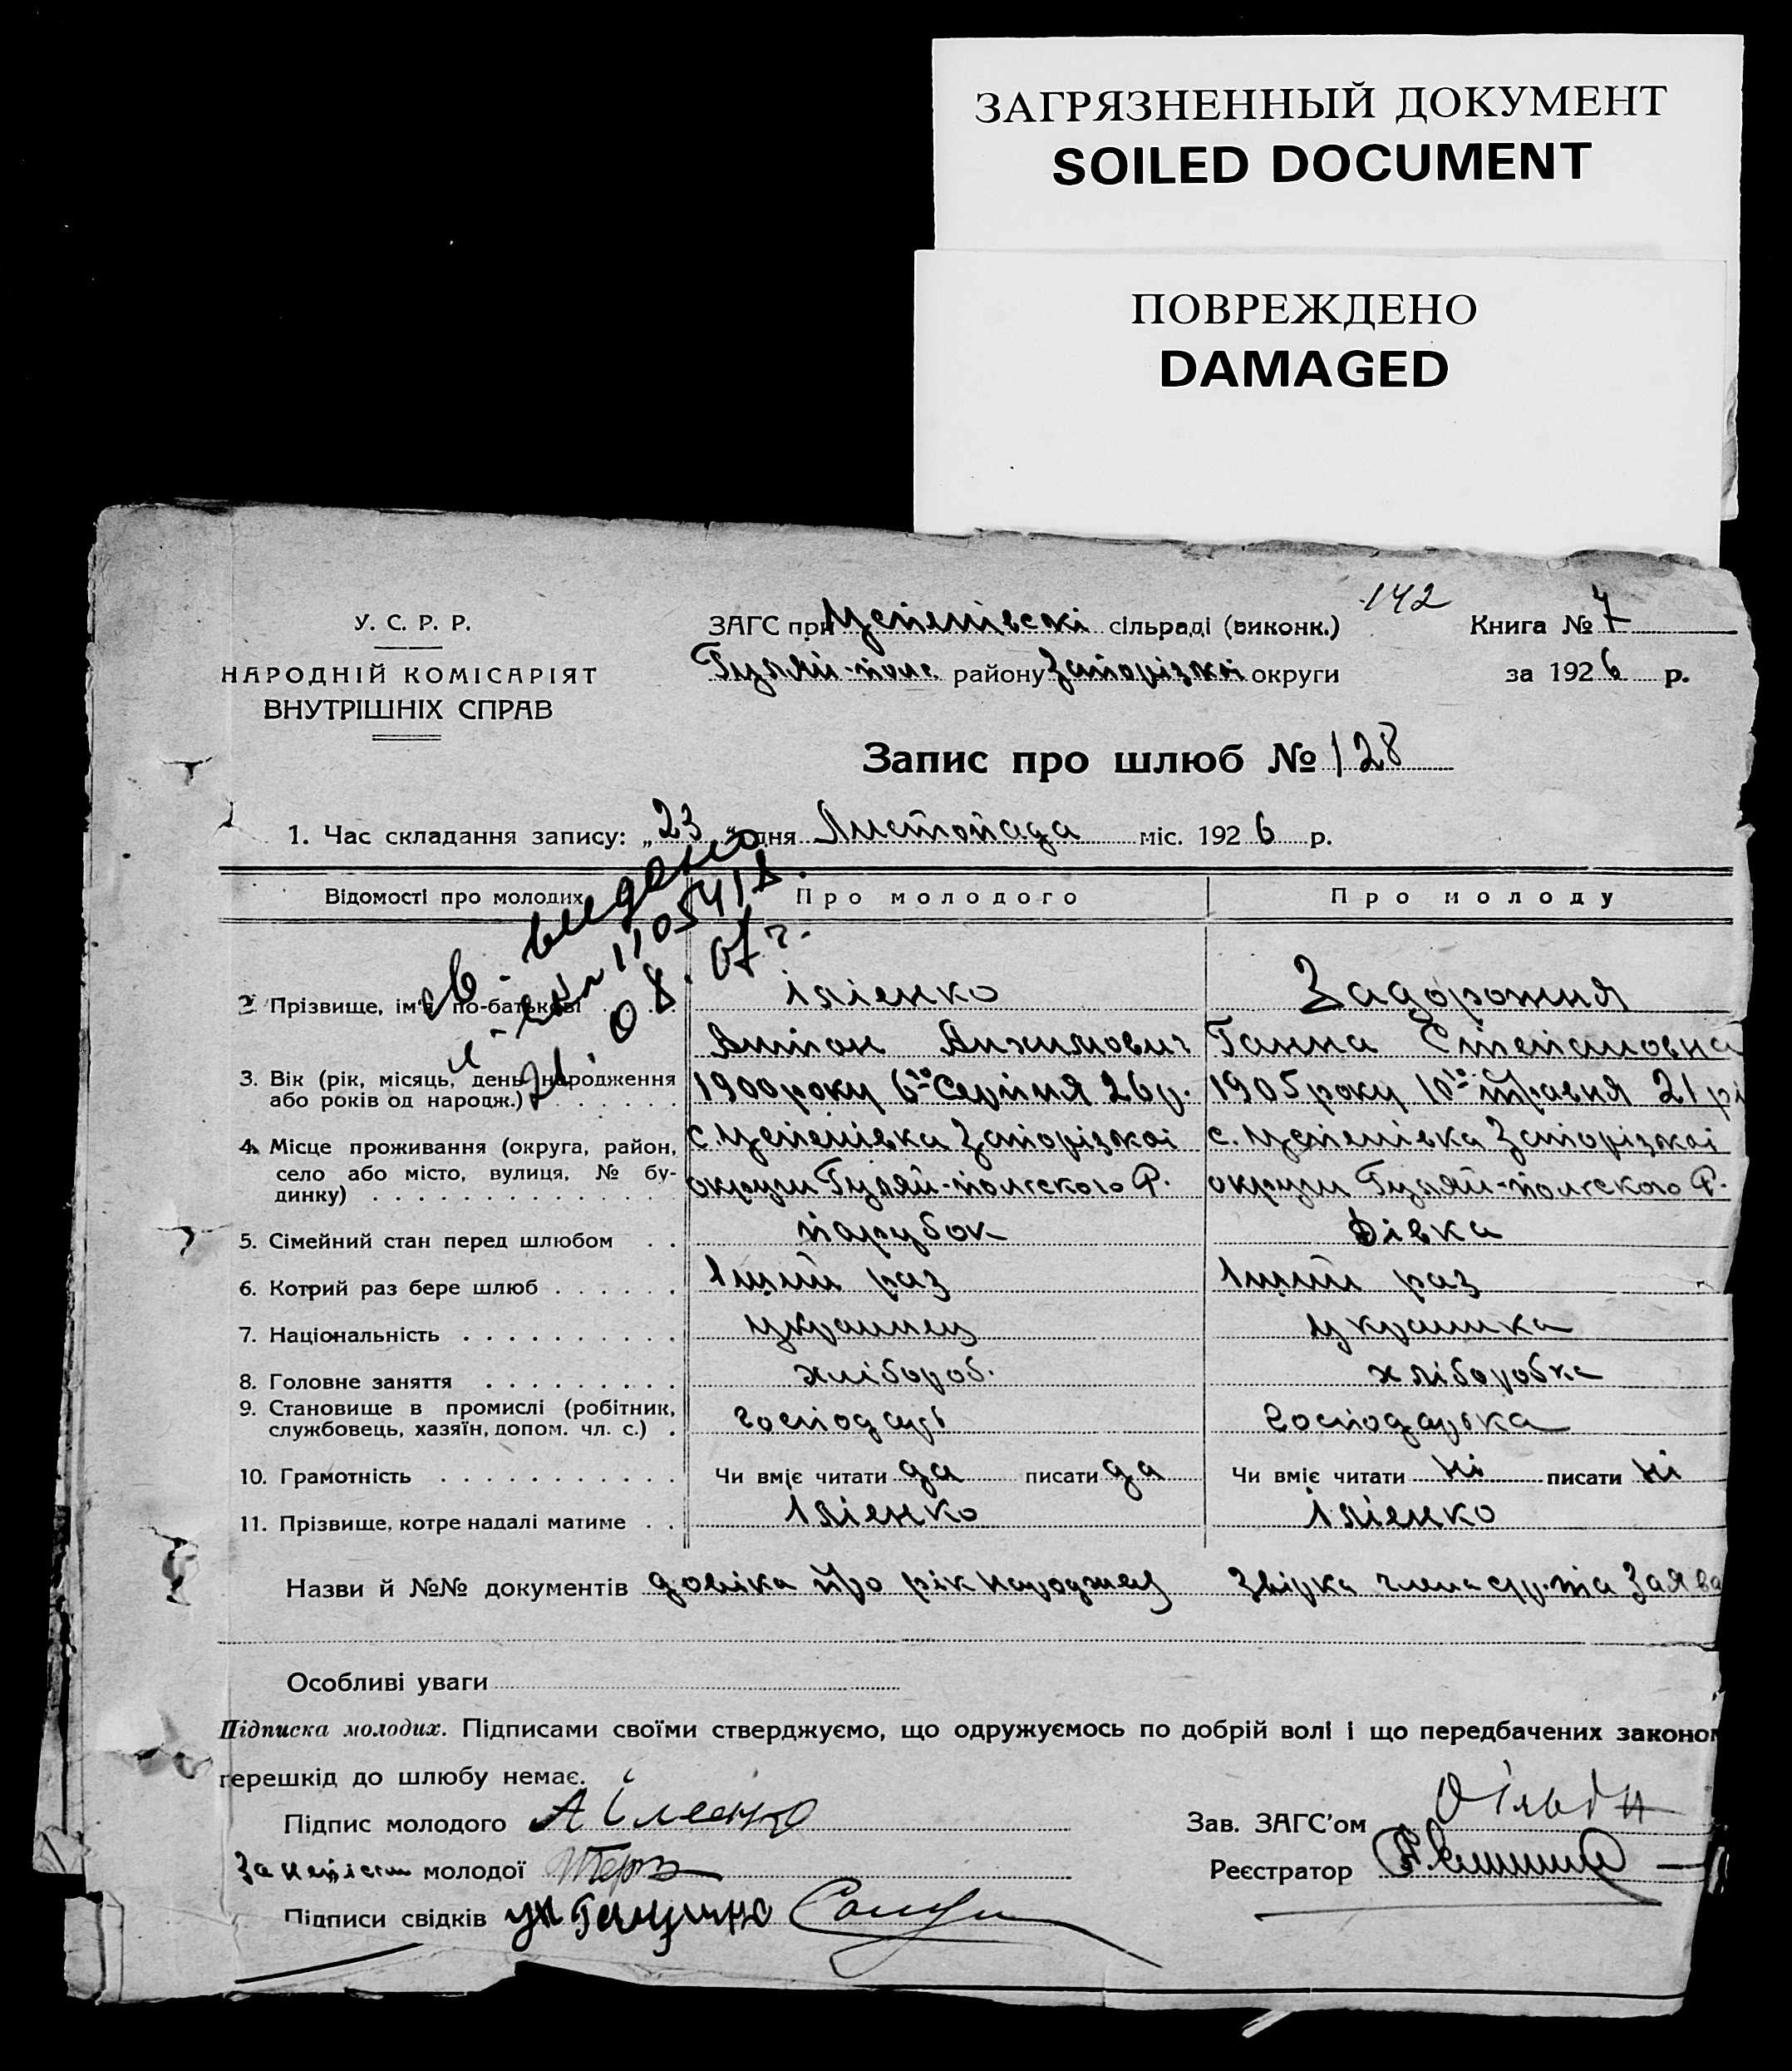 ЗАГРЯЗНЕННЫЙ ДОКУМЕНТ
SOILED DOCUMENT
ПОВРЕЖДЕНО
DAMAGED
142
У. С. Р. Р.
НАРОДНІЙ КОМІСАРІЯТ
ВНУТРІШНІХ СПРАВ
ЗАГС при Успенівскі сільраді (виконк.)
Гуляй-поле району Запорізкої округи
Книга № 7
за 1926 р.
Запис про шлюб № 128
1. Час складання запису: „23“ дня Листопада міс. 1926 р.
Відомості про молодих
Про молодого
Про молоду
св. видано
1105418.
21.08.07г.
2. Прізвище, ім'я, по-батькові . . . Ілієнко Задорожня
Антон Якимович Ганна Степановна
3. Вік (рік, місяць, день народження або років од народж.) . . . . . . 1900 року 6го Серпня 26 р. 1905 року 10го травня 21 рі
4. Місце проживання (округа, район, с. Успенівка Запорізкої с. Успенівка Запорізкої
село або місто, вулиця, № будинку) . . . . . . . . . . . . . округи Гуляй-польского Р. округи Гуляй-польского Р.
5. Сімейний стан перед шлюбом . . парубок Дівка
6. Котрий раз бере шлюб . . . . . . 1ший раз 1ший раз
7. Національність . . . . . . . . . . украинец украинка
8. Головне заняття . . . . . . . . . хлібороб. хліборобка
9. Становище в промислі (робітник, службовець, хазяїн, допом. чл. с.) . господарь Господарька
10. Грамотність . . . . . . . . . . . Чи вміє читати да писати да Чи вміє читати ні писати ні
11. Прізвище, котре надалі матиме . . Ілієнко Ілієнко
Назви й №№ документів довіка про рік народжен Звірка члена та Заява
Особливі уваги
Підписка молодих. Підписами своїми стверджуємо, що одружуємось по добрій волі і що передбачених законом
перешкід до шлюбу немає.
Підпис молодого А Ілленко
Зав. ЗАГС'ом
За молодої
Реєстратор
Підписи свідків